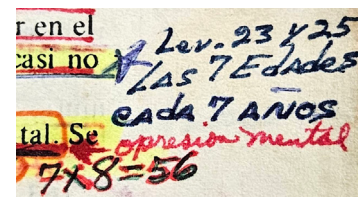 r en el
casi no
Lev. 23 y 25
LAS 7 Edades
cada 7 AÑOS
tal. Se
opresion mental
7x8=56